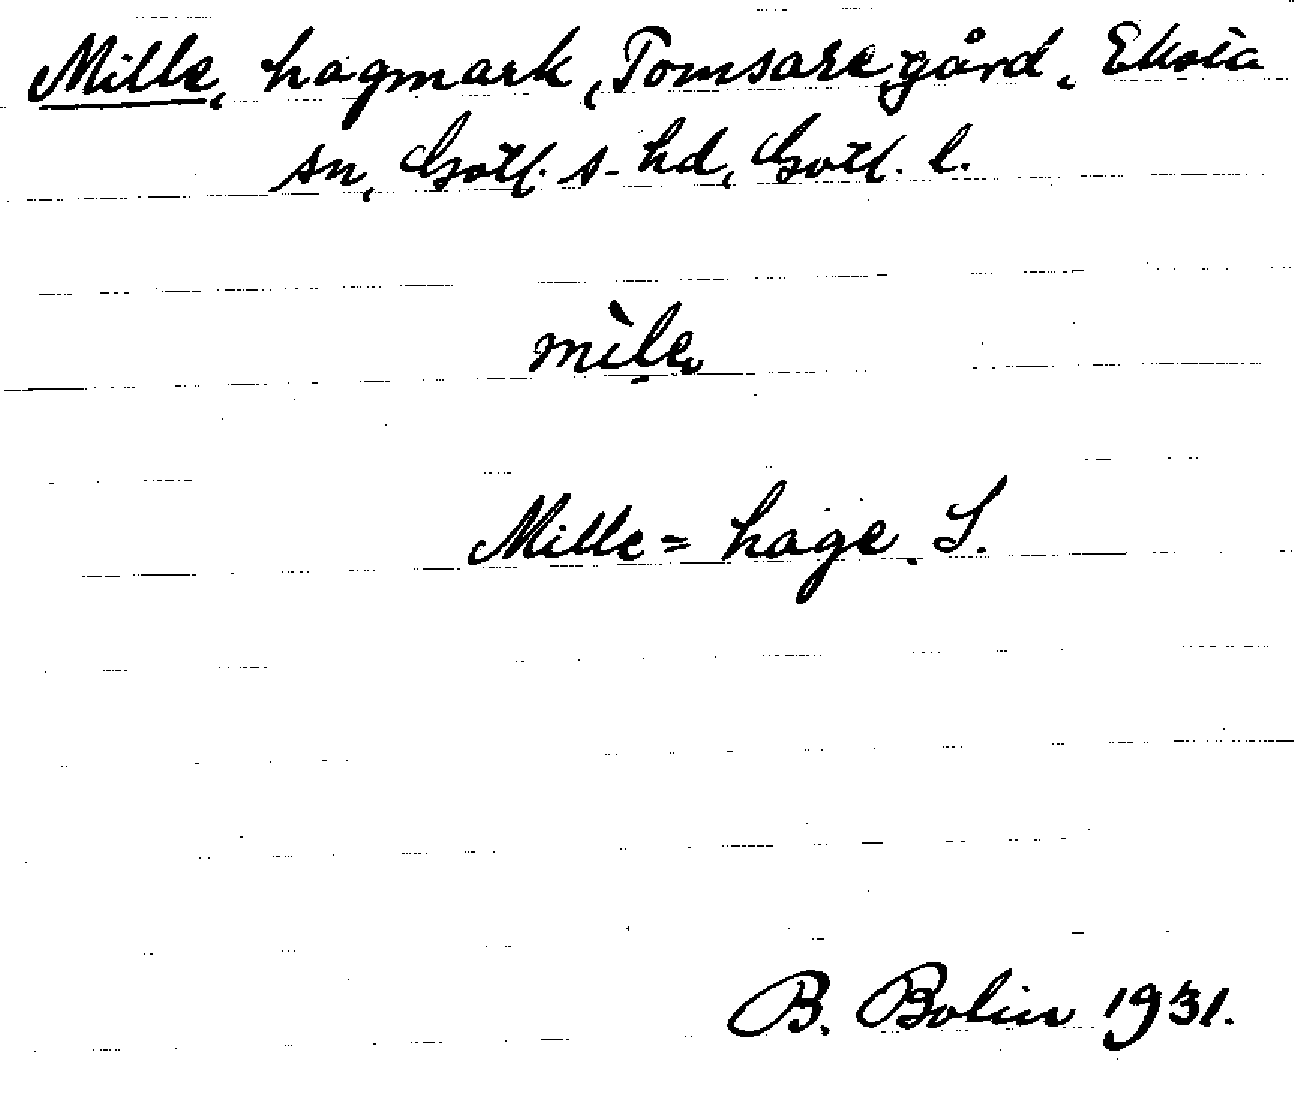 Mille, hagmark, Tomsarve gård, Eksta
sn, Gotl. s. hd, Gotl. l.
mìlẹ
Mille = hage. S.
B. Bolin 1931.